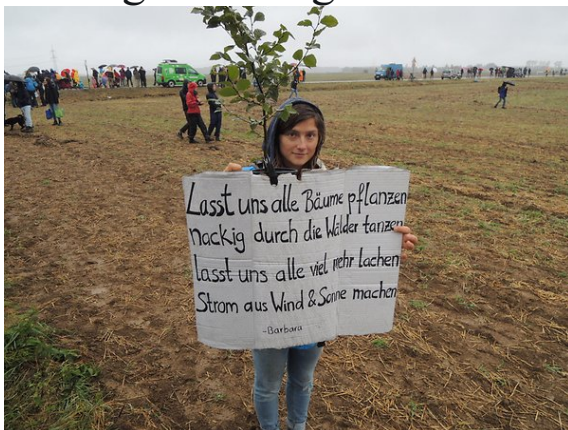 Lasst uns alle Bäume pflanzen
nackig durch die Wälder tanzen
lasst uns alle viel mehr lachen
Strom aus Wind & Sonne machen
-Barbara